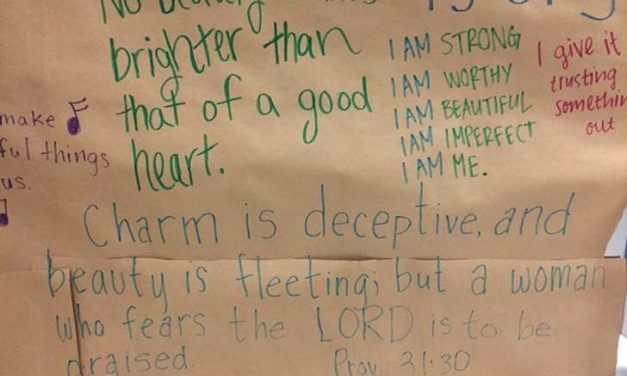 No
brighter than
that of a good
heart.
I AM STRONG
I AM WORTHY
I AM BEAUTIFUL
I AM IMPERFECT
I AM ME.
I give it
trusting
somethin
out
make
ful things
us.
Charm is deceptive, and
beauty is fleeting; but a woman
who fears the LORD is to be
praised. Prov. 31:30